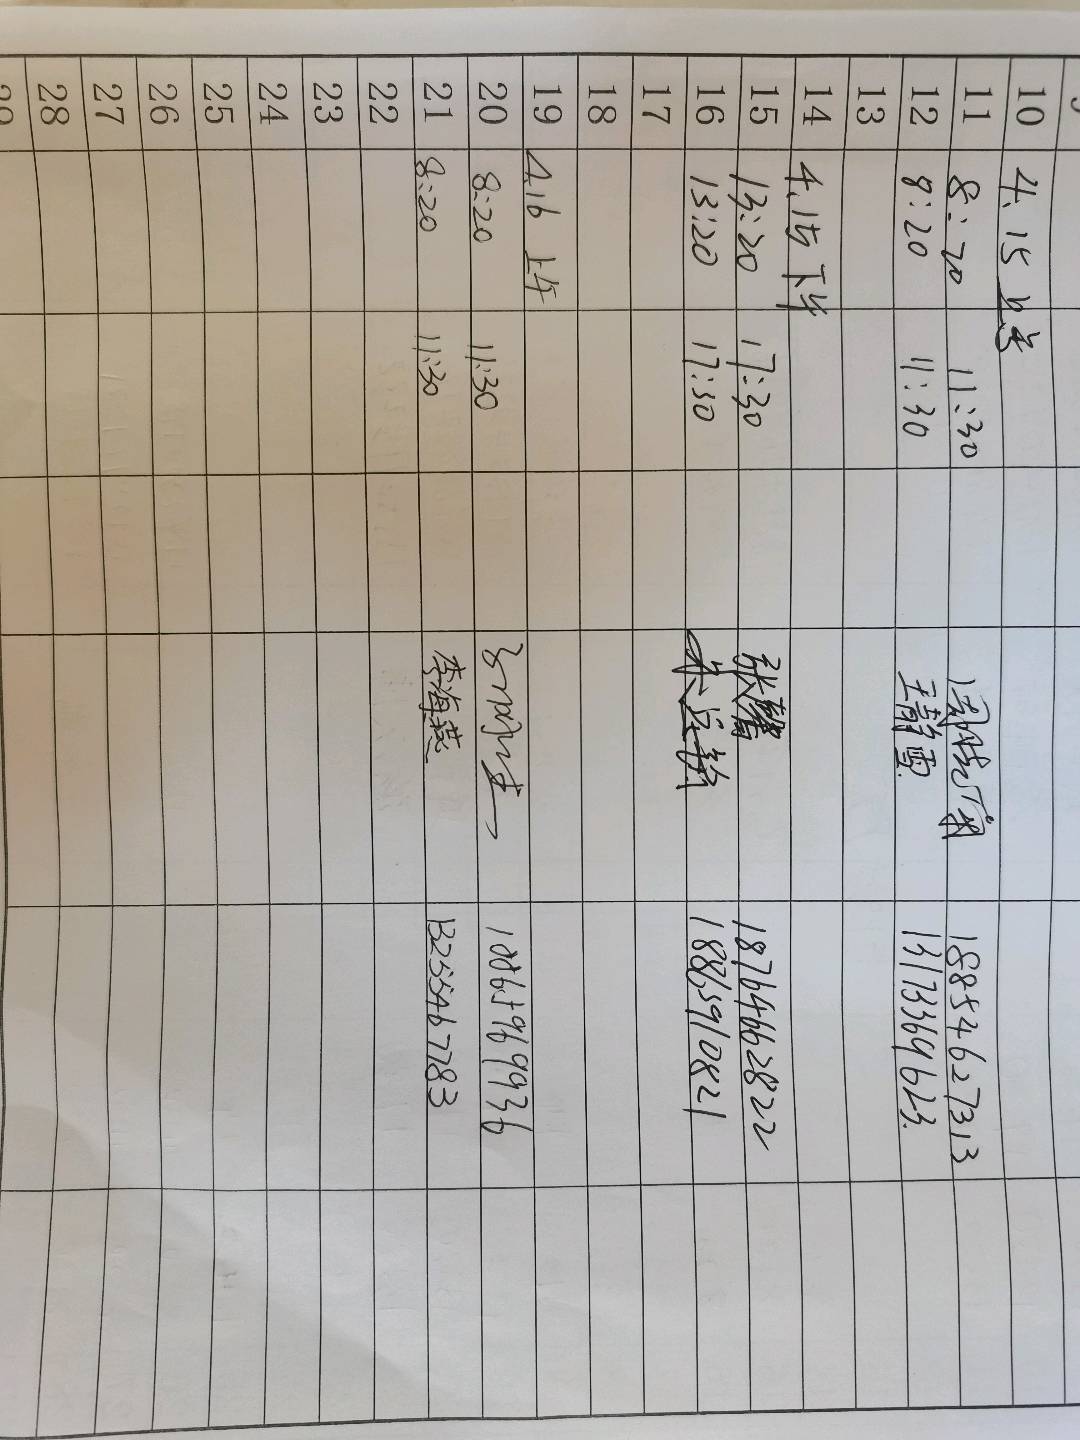 10 4.15 上午
11 8:20 11:30 18854627313
12 8:20 11:30 王静雪 13173369623
13
14 4.15 下午
15 13:20 17:30 张馨 18764662822
16 13:20 17:30 18865910821
17
18
19 4.16 上午
20 8:20 11:30 18865969936
21 8:20 11:30 李海燕 13255467783
22
23
24
25
26
27
28